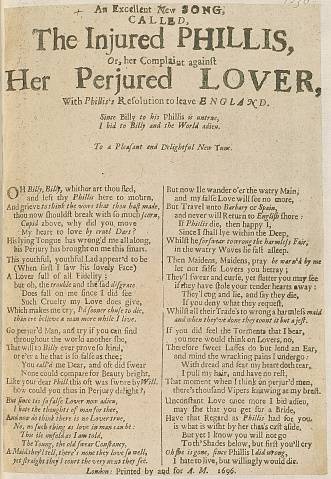 An Excellent New SONG,
CALLED,
The Injured PHILLIS,
Or, her Complaint against
Her Perjured LOVER,
With Phillis's Resolution to leave ENGLAND.
Since Billy to his Phillis is untrue,
I bid to Billy and the World adieu.
To a Pleasant and Delightful New Tune.
OH Billy, Billy, whither art thou fled,
and left thy Phillis here to mourn,
And grieve to think the vows that thou hast made,
thou now shouldst break with so much scorn,
Cupid above, why did you move
My heart to love by cruel Dart?
His lying Tongue has wrong'd me all along,
his Perjury has brought on me this smart.
This youthful, youthful Lad appear'd to be
(When first I saw his lovely Face)
A Lover full of all Fidelity;
but oh, the trouble and the sad disgrace
Does fall on me since I did see
Such Cruelty my Love does give,
Which makes me cry, I'd sooner chuse to die,
than ere believe a man more while I live.
Go perjur'd Man, and try if you can find
throughout the world another she,
That will to Billy ever prove so kind,
or e'er a he that is so false as thee;
You call'd me Dear, and oft did swear
None could compare for Beauty bright,
Like your dear Phillis this oft was swore by Will.
how could you thus in Perjury delight?
But since tis so false Lover men adieu,
I hate the thoughts of man for thee,
And now do think there is no Lover true,
No, no such thing as love in man can be:
Tho tis unfold as I am told,
The Young, the old swear Constancy,
A Maid they'l tell, there's none they love so well,
yet straight they'l court the very next they see.
But now Ile wander o'er the watry Main,
and my false Love will see no more,
But Travel unto Barbary or Spain,
and never will Return to English shore:
If Phillis die, then happy I,
Since I shall lye within the Deep,
in the watry Waves lie fast asleep.
Then Maidens, Maidens, pray be warn'd by me
let not false Lovers you betray;
They'l swear and curse, yet flatter you may see
if they have stole your tender hearts away:
They'l cog and lie, and say they die,
If you deny what they request,
Whilst all their Trade's to wrong a harmless maid
and when they've done they count it but a jest.
If you did feel the Torments that I bear,
you nere would think on Lovers, no,
Therefore sweet Lasses do but lend an Ear,
and mind the wracking pains I undergo:
With dread and fear my heart does tear,
I pull my hair, and have no rest,
That moment when I think on perjur'd men,
there's thousand Vipers knawing at my breast.
Unconstant Love once more I bid adieu,
may she that you get for a Bride,
Have that Regard as Phillis had for you,
is what is wisht by her thas's cast aside.
But yet I know you will not go
Toth' Shades below, but first you'll cry
oh she is gone, since Phillis I did wrong,
I hate to live, but willingly would die.
London: Printed by and for A. M. 1696.